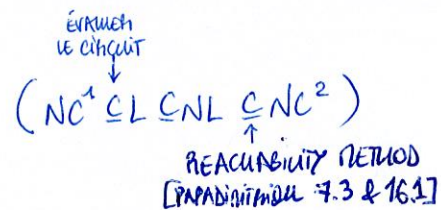 ÉVALUER
LE CIRCUIT
↓
(NC¹ ⊆ L ⊆ NL ⊆ NC²)
↑
REACHABILITY METHOD
[PAPADIMITRIOU 7.3 & 16.1]